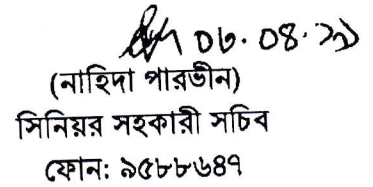 ০৬.০৪.২১
(নাহিদা পারভীন)
সিনিয়র সহকারী সচিব
ফোন: ৯৫৮৮৬৪৭